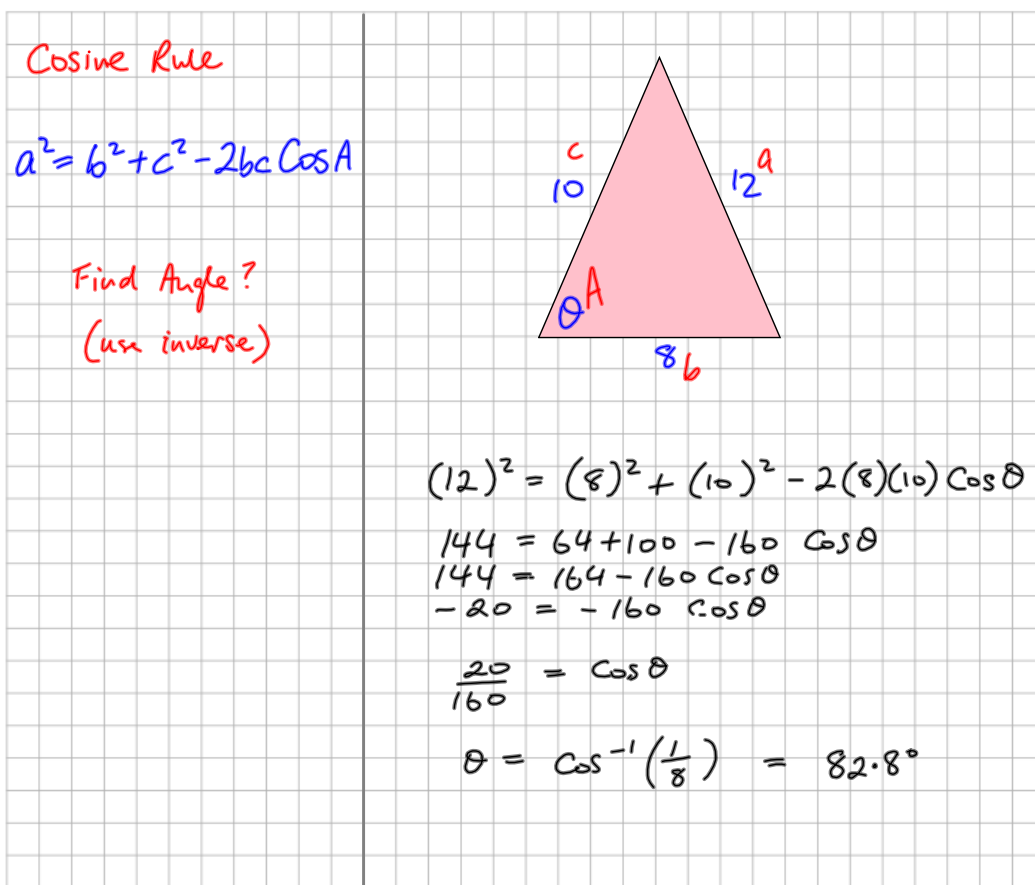 Cosine Rule
a² = b² + c² - 2bc Cos A
Find Angle?
(use inverse)
c
10
a
12
θ A
8 b
(12)² = (8)² + (10)² - 2(8)(10) Cosθ
144 = 64 + 100 - 160 Cosθ
144 = 164 - 160 Cosθ
- 20 = - 160 Cosθ
20/160 = Cosθ
θ = Cos⁻¹(1/8) = 82.8°